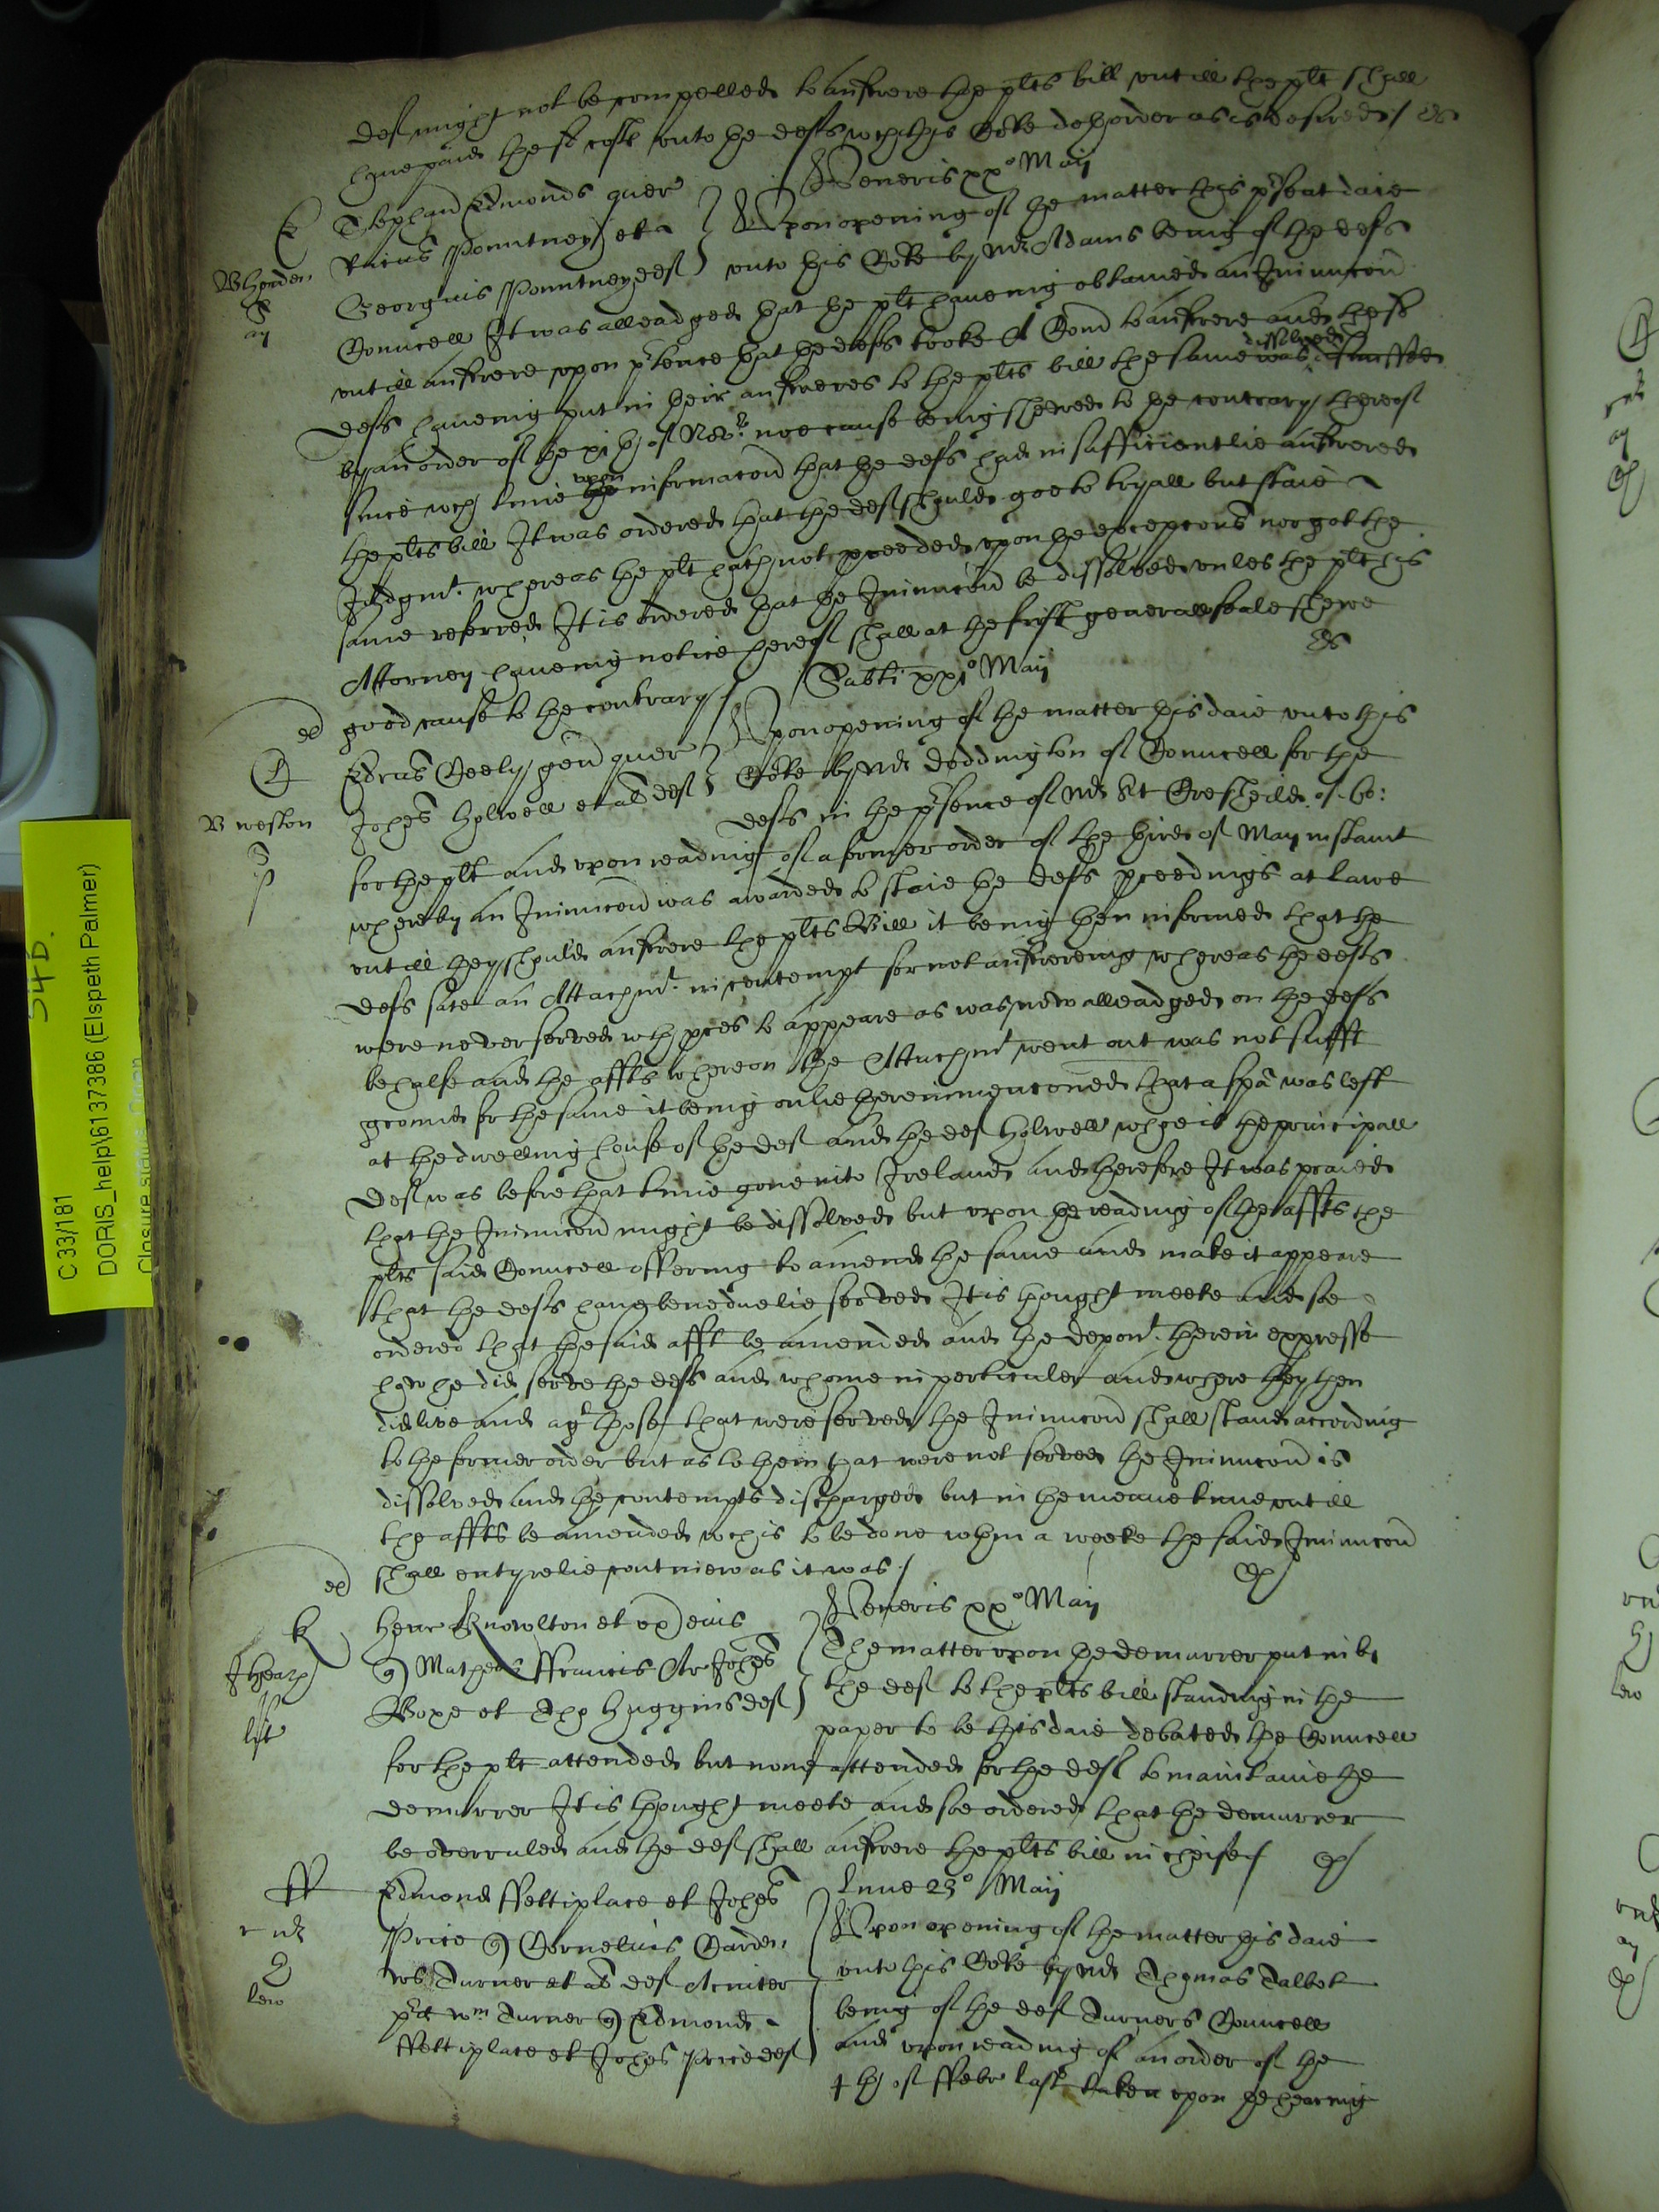 deft might not be compelled to answere the plts bill untill the plt shall
have paid these costs unto the defts wch this Cote doth order as is desired
Veneris xx° Maij
Stephan Edmonds quer
Pountney et
Georgius Pountney deft
Upon opening of the matter this pnte daie
unto this Cote by Mr Adams being of the defts
Councell It was alleadged that the plt haveing obtained an Iniuncon
untill answere upon ptence that the defts tooke a Comn to answere and these
defts haveing put in their answeres to the plts bill the same was dissolved
by an order of the xi th of Novr noe cause being shewed to the contrary thereof
since wch time upon informacon that the defts had insufficientlie answered
the plts bill It was ordered that the deft should goe to tryall but staie
Judgmt. whereas the plt hath not pceeded upon the excepcons nor got the
same referred It is ordered that the Iniuncon be dissolved unles the plt his
Attorney haveing notice hereof shall at the first generall seale shewe
good cause to the contrary
Sabti xxi° Maij
Edrus Ceely gen quer
Johes Holwell et al deft
Upon opening of the matter this daie unto this
Cote by Mr Doddington of Councell for the
defts in the psence of Mr Srt Cresheild of Co:
for the plt and upon reading of a former order of the third of May instant
whereby an Iniuncon was awarded to staie the defts pceedings at lawe
untill they should answere the plts Bill it being then informed that the
defts sate an Attachmt. in contempt for not answereing whereas the defts
were never served wth pces to appeare as was now alleadged on the defts
behalfe and the affts whereon the Attachmt went out was not sufft
ground for the same it being onlie therein mencioned that a spa was left
at the dwelling house of the deft and the deft Holwell whoe is the principall
deft was before that time gone into Ireland and therefore It was praied
that the Iniuncon might be dissolved but upon the reading of the affts the
plts said Councell offering to amend the same and make it appeare
that the defts have bene duelie served It is thought meete and soe
ordered that the said afft be amended and the depont. therein expresse
how he did serve the defts and whome in perticuler and where they then
did live and agt those that were served the Iniuncon shall stand according
to the former order but as to them that were not served the Iniuncon is
dissolved and the contempts discharged but in the meane time untill
the affts be amended wch is to be done wthin a weeke the said Iniuncon
shall entyrelie continew as it was
Veneris xx° Maij
Henr Knowlton et ux eius
Matheus ffrancis Ar Johes
Pope et Tho Huggins deft
The matter upon the demurrer put in by
the deft to the plts bill standing in the
paper to be this daie debated the Councell
for the plt attended but none attended for the deft to maintaine the
demurrer It is thought meete and soe ordered that the demurrer
be overruled and the deft shall answere the plts bill in cheife
Lune 23° Maij
Edmond ffettiplace et Johes
Price Cornelius
Turner et al deft
wm Turner Edmond
ffettiplace et Johes Price deft
Upon opening of the matter this daie
unto this Cote by Mr Thomas Talbot
being of the deft Turners Councell
and upon reading of an order of the
4 th of ffebr last taken upon the hearing
B weston
C 33/181
DORIS_help\6137386 (Elspeth Palmer)